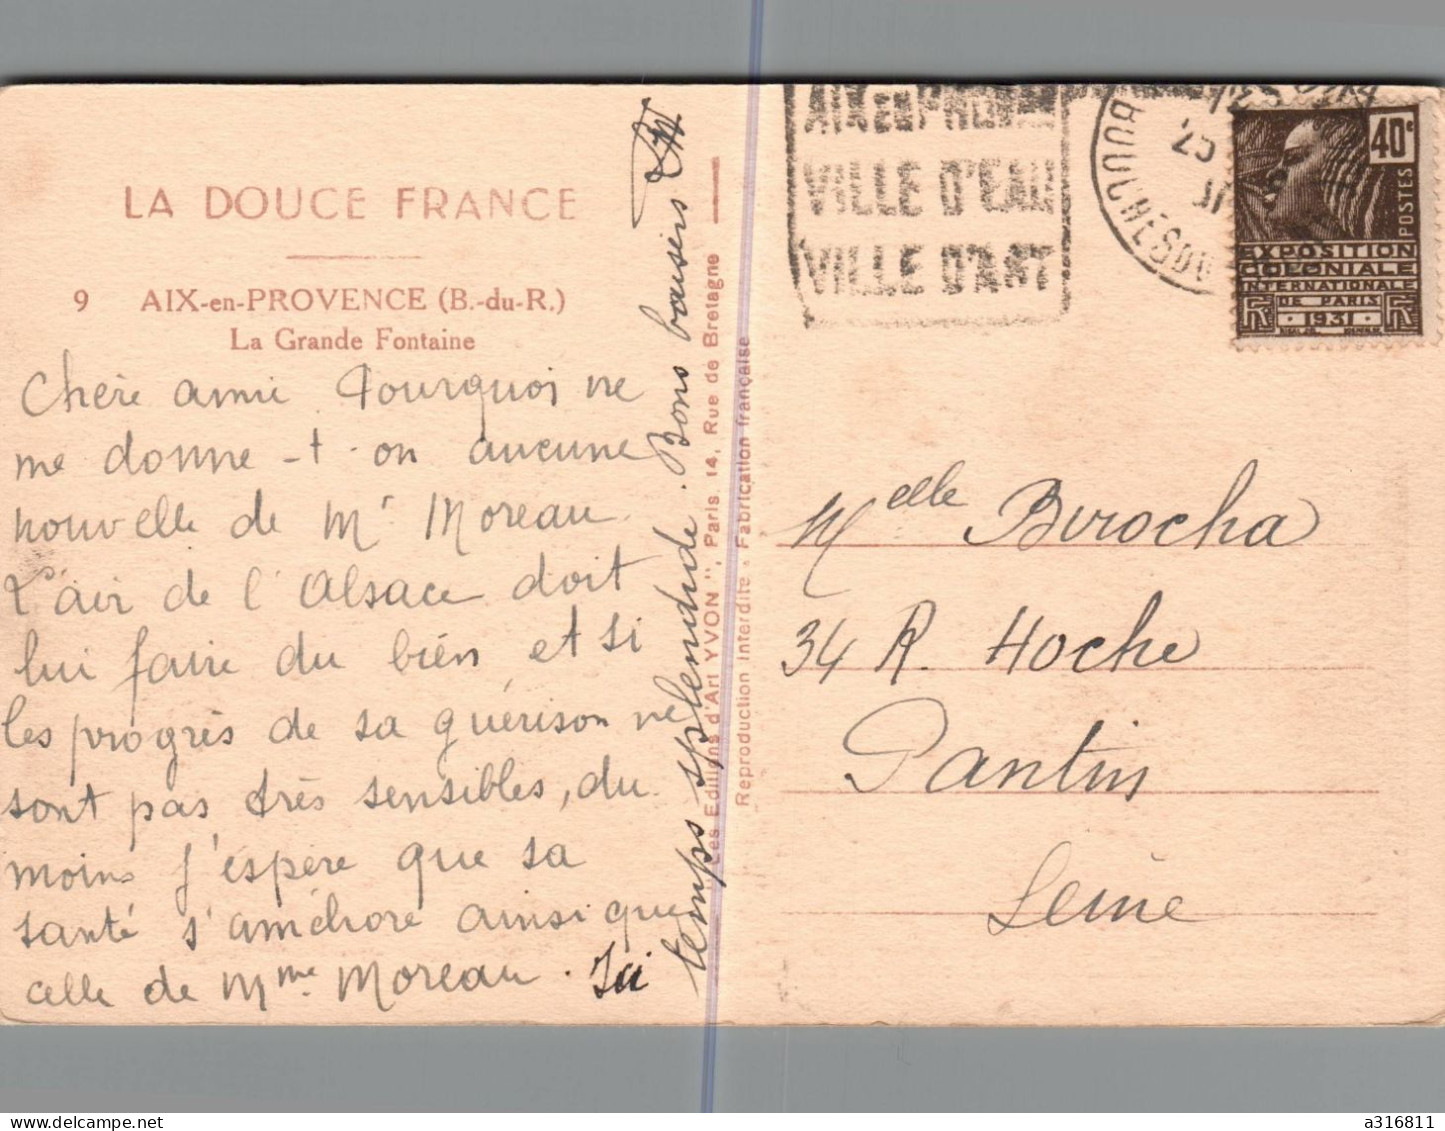 LA DOUCE FRANCE
9 AIX-en-PROVENCE (B.-du-R.)
La Grande Fontaine
Chère amie Pourquoi ne
me donne-t-on aucune
nouvelle de Mr Moreau.
L'air de l'Alsace doit
lui faire du bien et si
les progrès de sa guérison ne
sont pas très sensibles, du
moins j'espère que sa
santé s'améliore ainsi que
celle de Mme Moreau. Ici
temps splendide. Bons baisers
Les Editions d'Art YVON", Paris 14, Rue de Bretagne
Reproduction Interdite - Fabrication française
AIX EN PROVENCE
VILLE D'EAU
VILLE D'ART
BOUCHES DU
25
31
40c
POSTES
EXPOSITION
COLONIALE
INTERNATIONALE
DE PARIS
·1931·
RF
RF
Melle Birocha
34 R. Hoche
Pantin
Seine
delcampe.net
a316811